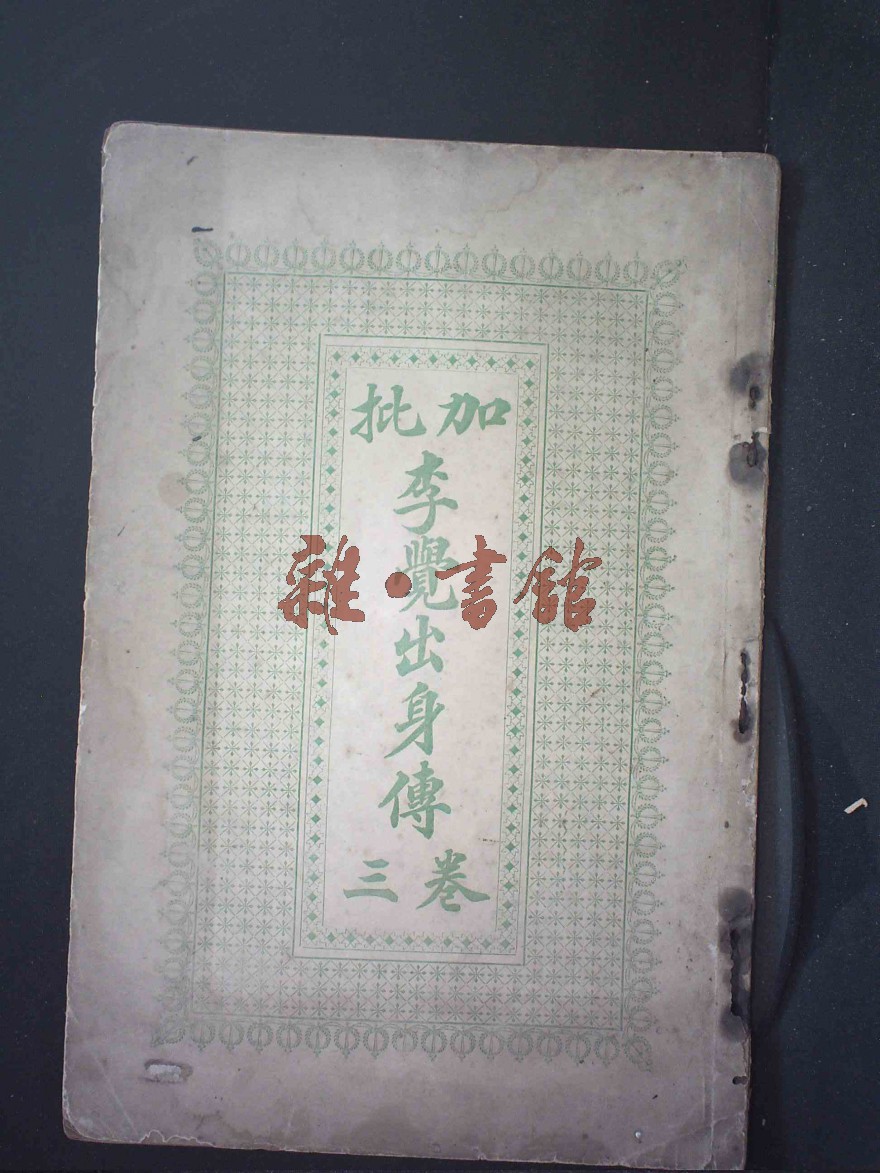 加批
李覺出身傳
卷三
雜·書館